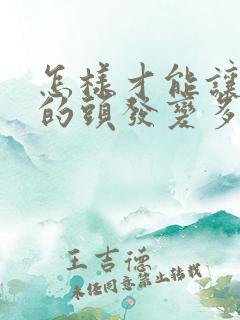 怎樣才能讓
的頭發變多
王吉德
未经同意禁止转载